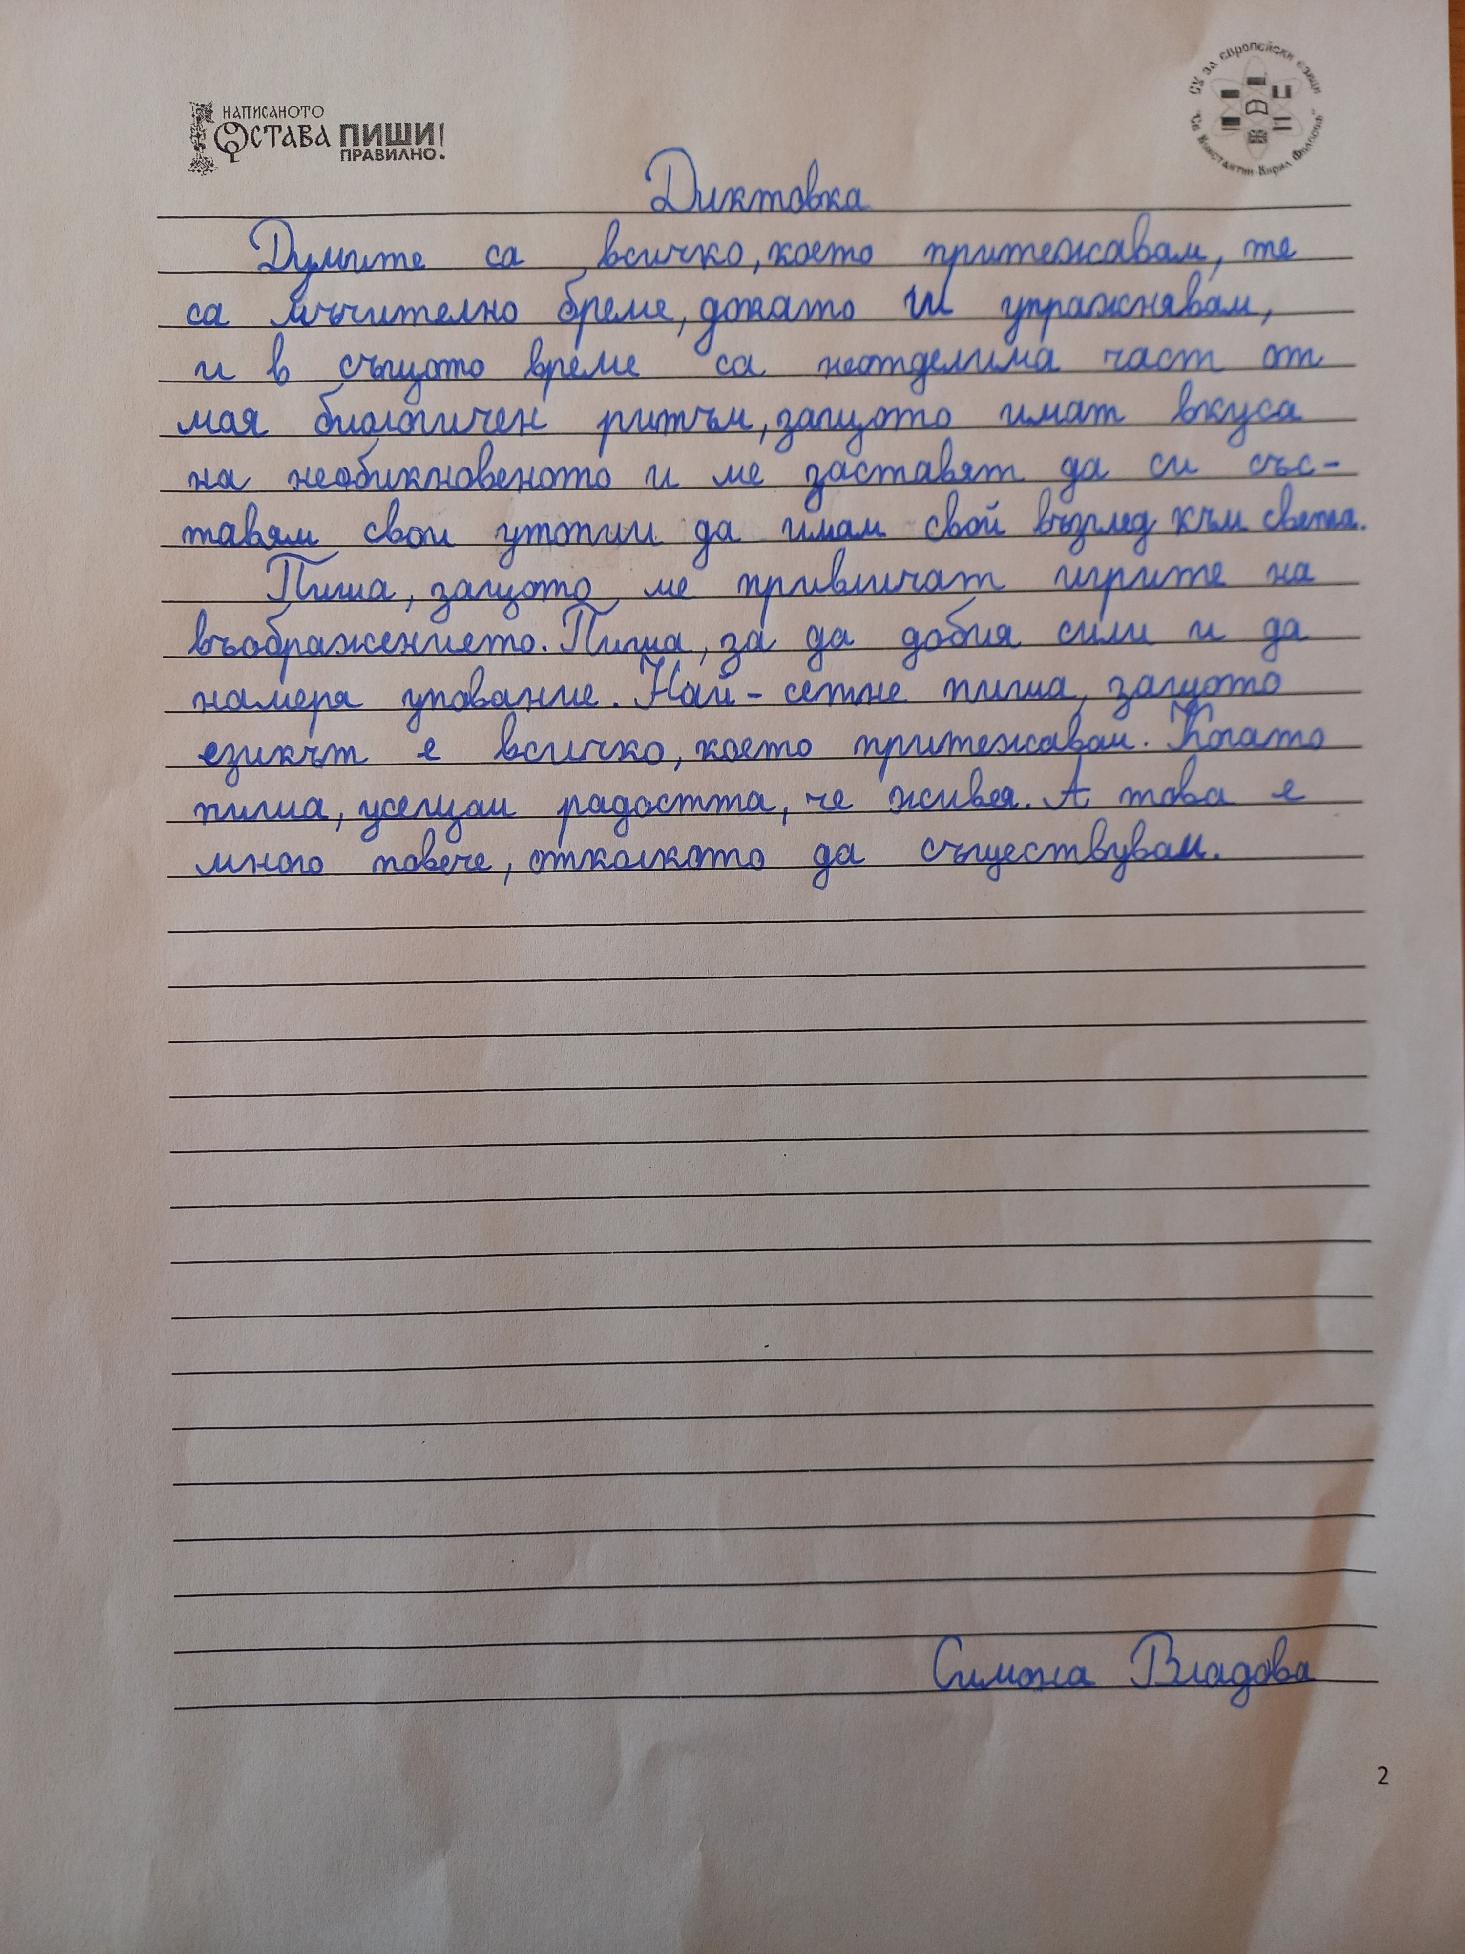 НАПИСАНОТО
ОСТАВА ПИШИ
ПРАВИЛНО.
СУ за европейски езици
"Св. Константин-Кирил Философ"
Диктовка
Думите са всичко, което притежавам, те
са мъчително бреме, докато ги упражнявам,
и в същото време са неотделима част от
мая биологичен ритъм, защото имат вкуса
на необикновеното и ме заставят да си със-
тавям свои утопии да имам свой възглед към света.
Пиша, защото ме привличат игрите на
въображението. Пиша, за да добия сили и да
намеря упование. Най-сетне пиша, защото
езикът е всичко, което притежавам. Когато
пиша, усещам радостта, че живея. А това е
много повече, отколкото да съществувам.
Симона Владова
2